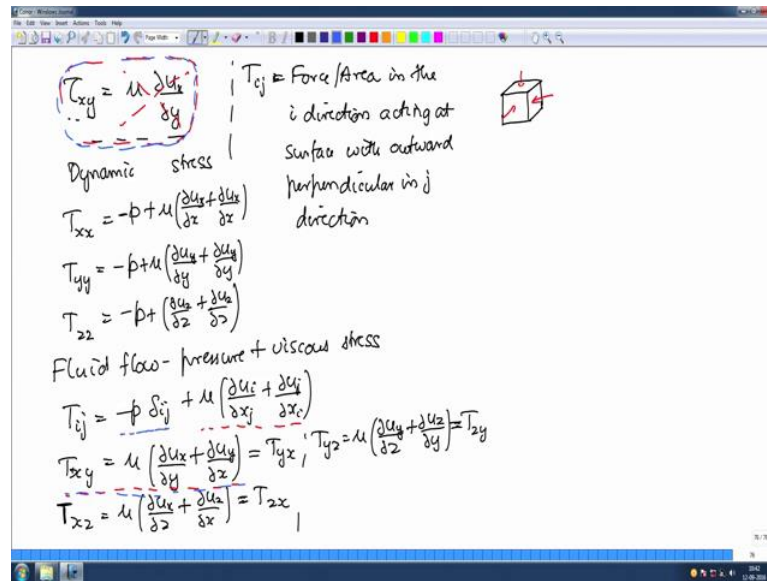 Comor - Windows Journal
File Edit View Insert Actions Tools Help
Page Width
τxy = μ ∂ux/∂y
Tij = Force/Area in the
i direction acting at
surface with outward
perpendicular in j
direction
Dynamic stress
Txx = -p+μ(∂ux/∂x+∂ux/∂x)
Tyy = -p+μ(∂uy/∂y+∂uy/∂y)
Tzz = -p+(∂uz/∂z+∂uz/∂z)
Fluid flow - pressure + viscous stress
Tij = -p δij + μ(∂ui/∂xj+∂uj/∂xi)
Txy = μ(∂ux/∂y+∂uy/∂x) = Tyx ; Tyz = μ(∂uy/∂z+∂uz/∂y) = Tzy
Txz = μ(∂ux/∂z+∂uz/∂x) = Tzx